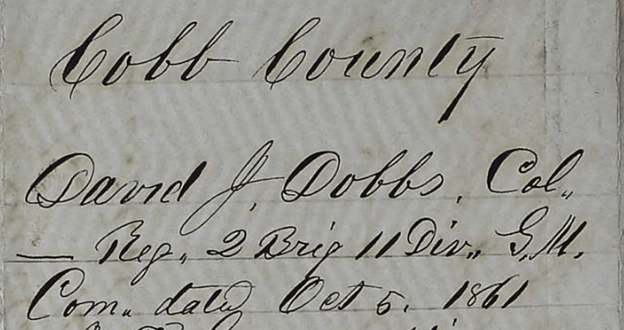 Cobb County
David J. Dobbs, Col.
— Reg. 2 Brig 11 Div. G.M.
Com. dated Oct 5. 1861